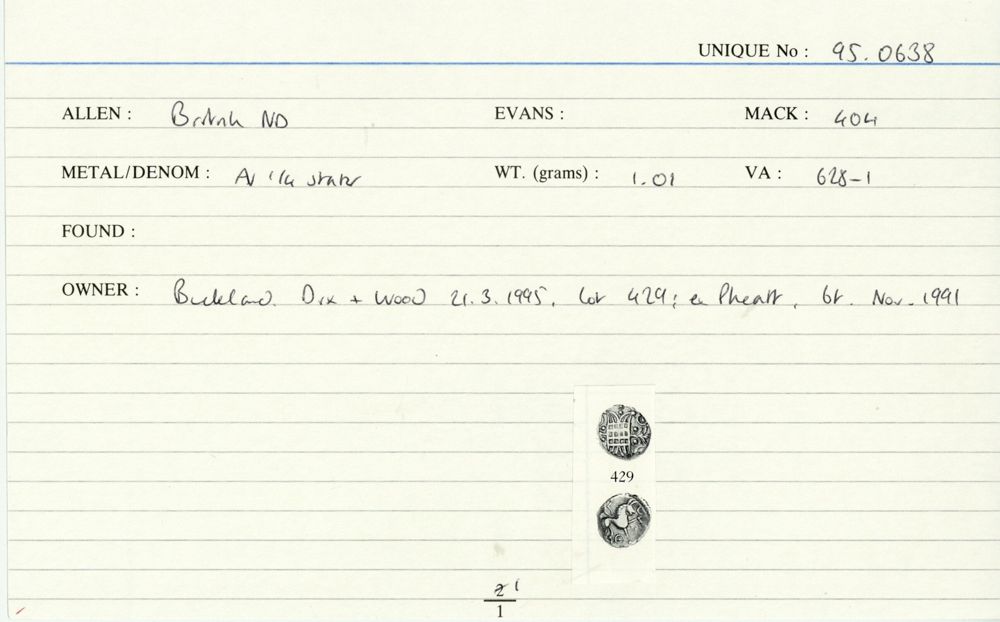 UNIQUE No : 95.0638
ALLEN : British ND EVANS : MACK : 404
METAL/DENOM : AV 1/4 stater WT. (grams) : 1.01 VA : 628-1
FOUND :
OWNER : Buckland. Dix + Wood 21.3.1995, lot 429; ex Pheatt, bt. Nov. 1991
429
2 1
1